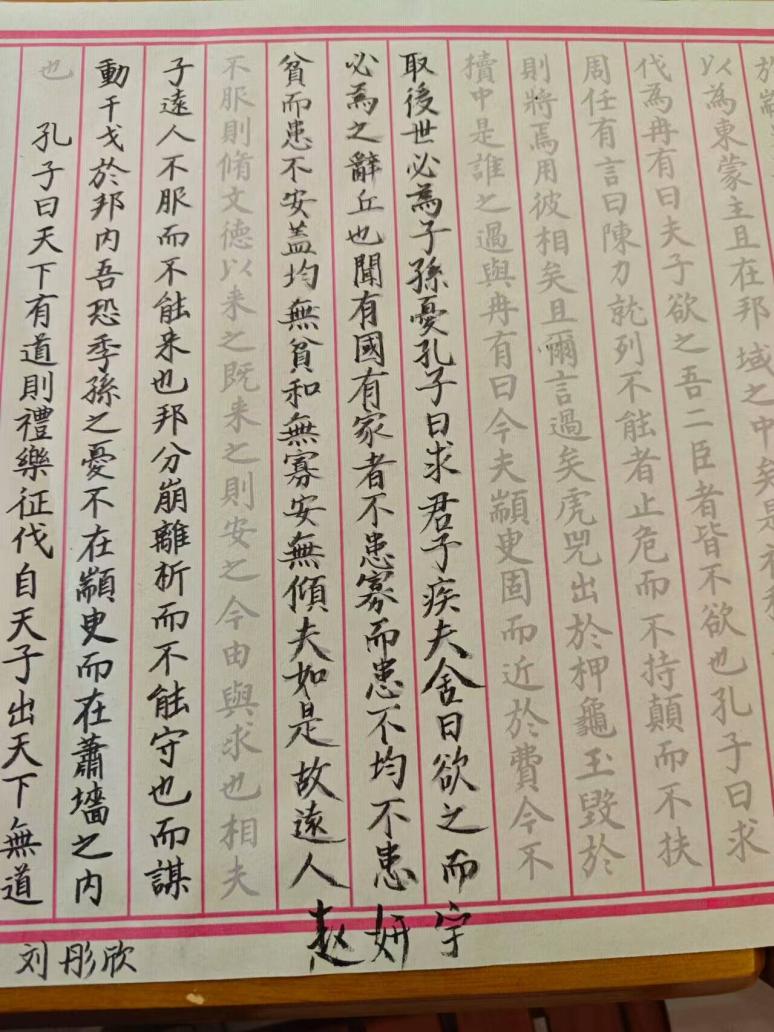 於顓
以為東蒙主且在邦域之中矣是社稷
伐為冉有曰夫子欲之吾二臣者皆不欲也孔子曰求
周任有言曰陳力就列不能者止危而不持顛而不扶
則將焉用彼相矣且爾言過矣虎兕出於柙龜玉毀於
櫝中是誰之過與冉有曰今夫顓臾固而近於費今不
取後世必為子孫憂孔子曰求君子疾夫舍曰欲之而
必為之辭丘也聞有國有家者不患寡而患不均不患
貧而患不安盖均無貧和無寡安無傾夫如是故遠人
不服則脩文德以来之既来之則安之今由與求也相夫
子遠人不服而不能来也邦分崩離析而不能守也而謀
動干戈於邦内吾恐季孫之憂不在顓臾而在蕭墻之内
也
孔子曰天下有道則禮樂征伐自天子出天下無道
赵妍宇
刘彤欣